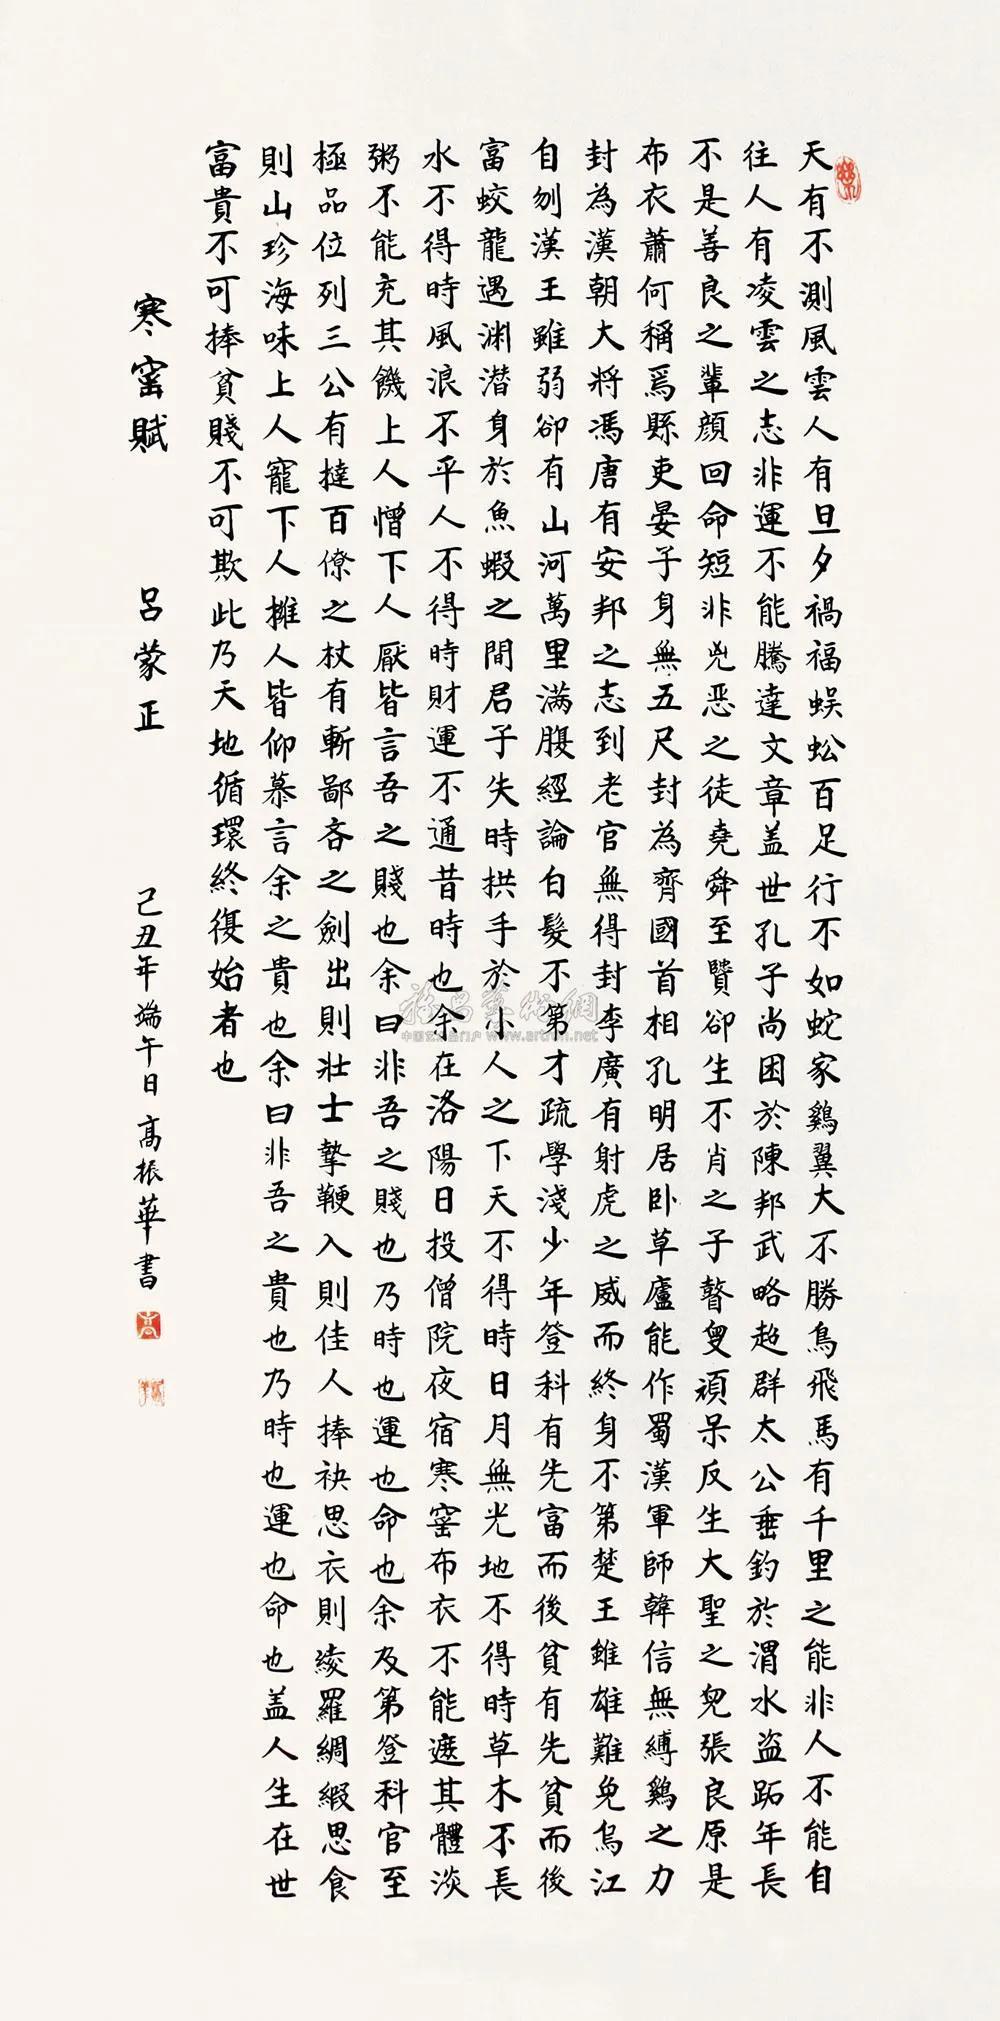 天有不測風雲人有旦夕禍福蜈蚣百足行不如蛇家鷄翼大不勝鳥飛馬有千里之能非人不能自
往人有凌雲之志非運不能騰達文章盖世孔子尚困於陳邦武略超群太公垂釣於渭水盗跖年長
不是善良之輩顔回命短非兇恶之徒堯舜至賢卻生不肖之子瞽叟頑呆反生大聖之兒張良原是
布衣蕭何稱爲縣吏晏子身無五尺封為齊國首相孔明居卧草廬能作蜀漢軍師韓信無縛鷄之力
封為漢朝大将馮唐有安邦之志到老官無得封李廣有射虎之威而終身不第楚王雖雄難免烏江
自刎漢王雖弱卻有山河萬里满腹經論白髮不第才疏學淺少年登科有先富而後貧有先貧而後
富蛟龍遇渊潜身於魚蝦之間君子失時拱手於小人之下天不得時日月無光地不得時草木不長
水不得時風浪不平人不得時財運不通昔時也余在洛陽日投僧院夜宿寒窑布衣不能遮其體淡
粥不能充其饑上人憎下人厭皆言吾之賤也余曰非吾之賤也乃時也運也命也余及第登科官至
極品位列三公有撻百僚之杖有斬鄙吝之劍出則壮士擎鞭入則佳人捧袂思衣則綾羅綢緞思食
則山珍海味上人寵下人擁人皆仰慕言余之貴也余曰非吾之貴也乃時也運也命也盖人生在世
富貴不可捧貧賤不可欺此乃天地循環終復始者也
寒窑賦 呂蒙正 己丑年端午日高振華書
中国艺术品门户 www.artron.net